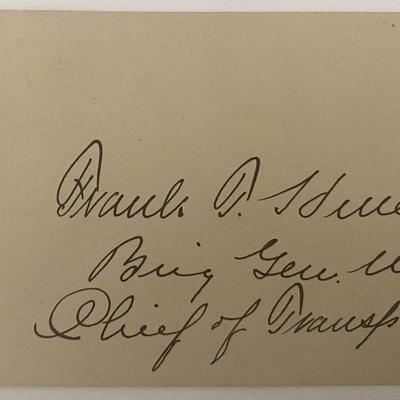 Frank T. Hine
Brig Gen. U
Chief of Transp